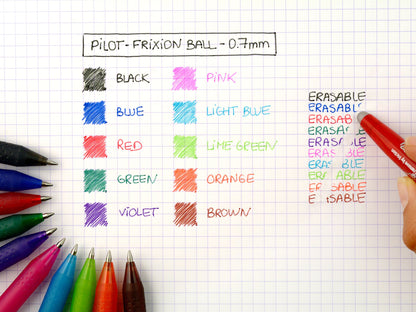 PILOT-FRIXION BALL - 0.7mm
BLACK
BLUE
RED
GREEN
VIOLET
PINK
LIGHT BLUE
LIME GREEN
ORANGE
BROWN
ERASABLE
ERASABLE
ERASAB
ERASABLE
ERASA BLE
ERAS BLE
ERAS BLE
ER ABLE
ER SABLE
E SABLE